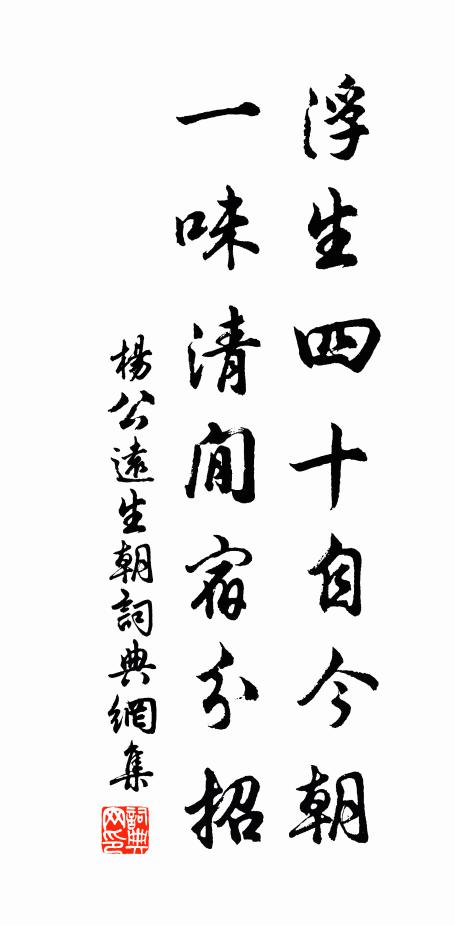 浮生四十自今朝
一味清閒宿分招
楊公遠生朝詞典網集
詞典
网印